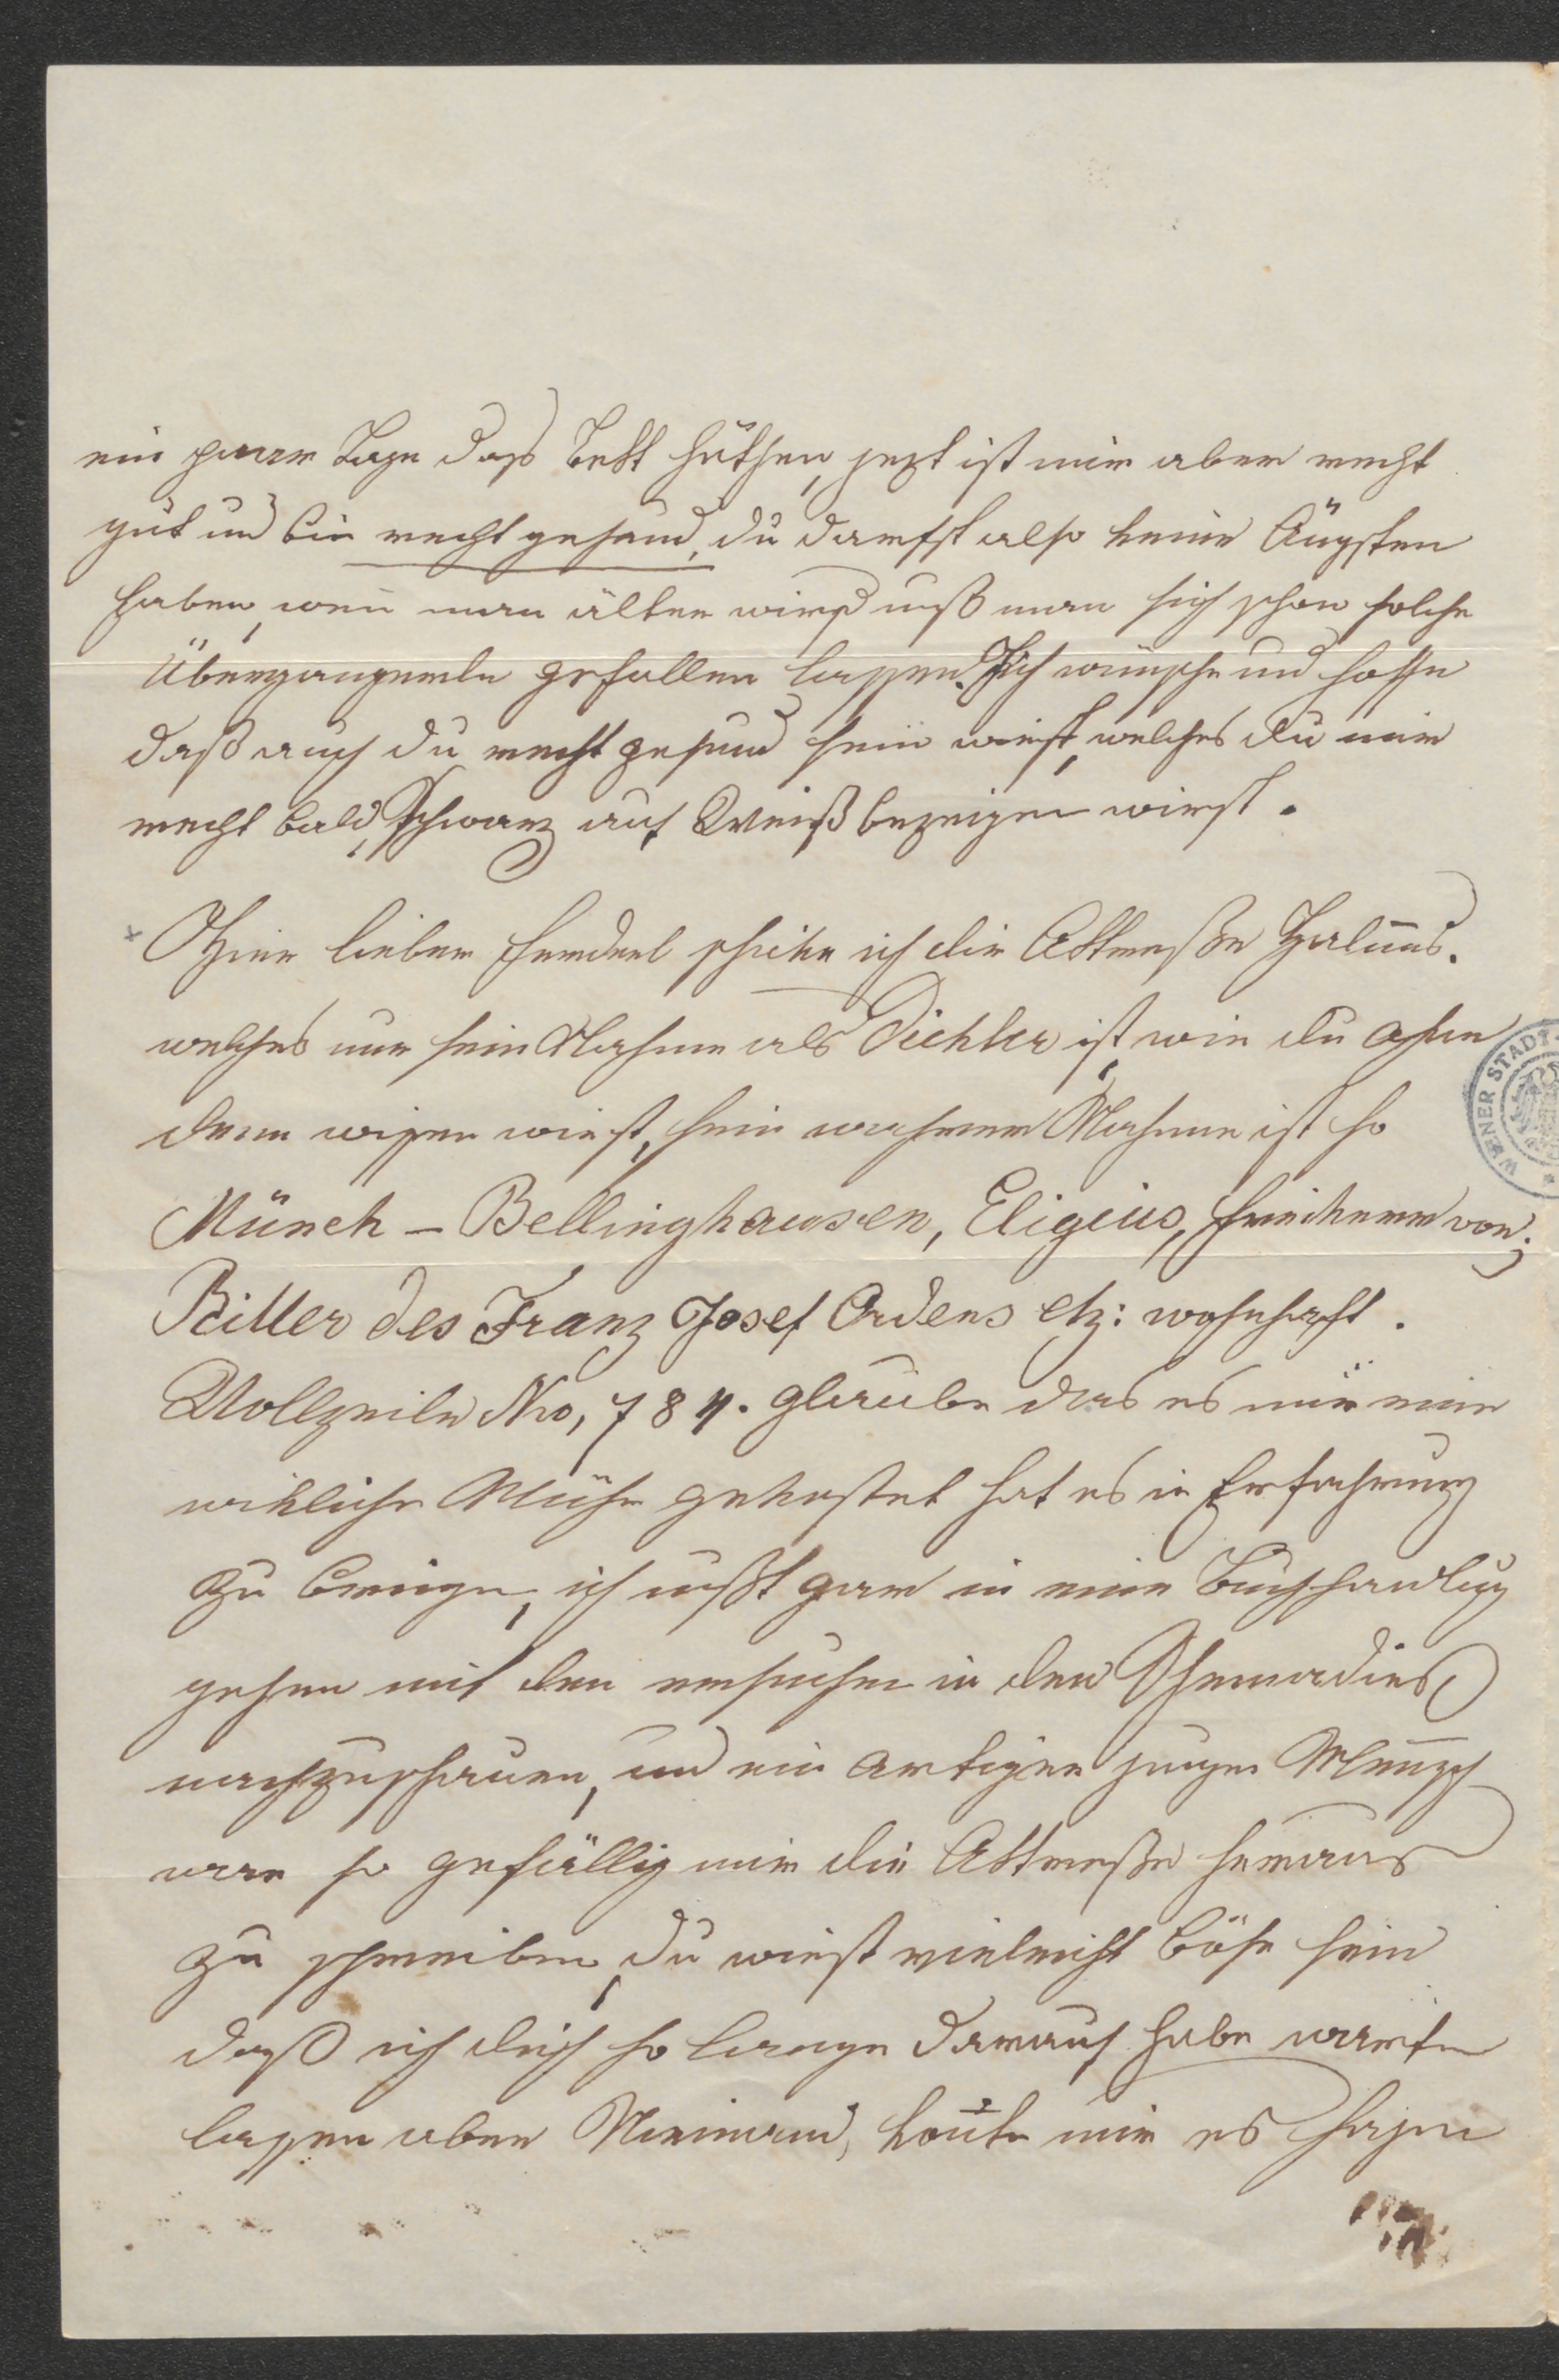 ein paar Tage das Bett hüthen, jezt ist mir aber recht
gut und bin recht gesund, du darfst also keine Ängsten
haben, wen̄ man älter wird muß man sich schon solche
Übergangerln gefallen lassen. Ich wünsche und hoffe
daß auch du recht gesund sein wirst, welches du mir
recht bald, Schwarz auf Weiß bezeigen wirst.
Hier lieber Ferderl schike ich dir Attreße Halms.
welches nur sein Nahme als Dichter ist, wie du ohne
dem wissen wirst, sein wahrer Nahme ist so
Münch - Bellinghausen, Eligius, Freiherr von;
Ritter des Franz Josef Ordens etz: wohnhaft.
Wollzeile Nro, 784. glaube das es mir eine
wirkliche Mühe gekostet hat es in Erfahrung
zu bringen, ich mußt gar in eine Buchhandlug
gehen mit den ersuchen in den
nachzuschauen, und ein artiger junger Men̄sch
war so gefällig mir die Attreße heraus
zu schreiben, du wirst vieleicht böse sein
daß ich dich so lange darauf habe warten
lassen aber Niemand, kon̄te mir es sagen
WIENER STADT-